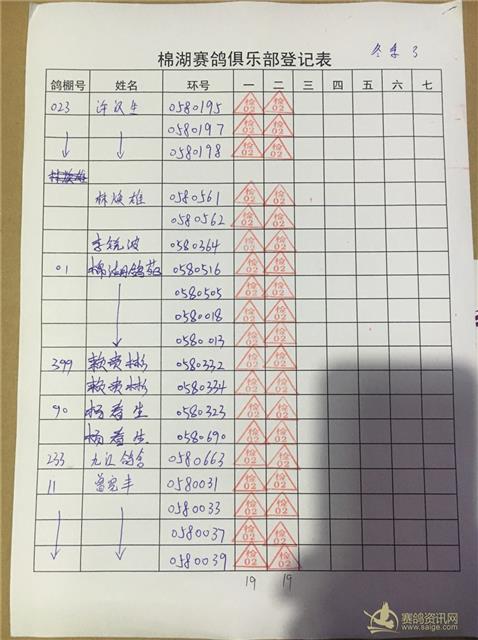 棉湖赛鸽俱乐部登记表 冬季 3
鸽棚号 姓名 环号 一 二 三 四 五 六 七
023 许汉生 0580195 检02 检02
0580197 检02 检02
0580198 检02 检02
林焕雄
林焕雄 0580561 检02 检02
0580562 检02 检02
李锐波 0580364 检02 检02
01 棉湖鸽苑 0580516 检02 检02
0580505 检02 检02
0580018 检02 检02
0580013 检02 检02
399 赖贵彬 0580332 检02 检02
赖贵彬 0580334 检02 检02
90 杨春生 0580323 检02 检02
杨春生 0580690 检02 检02
233 九江鸽舍 0580663 检02 检02
11 曾宪丰 0580031 检02 检02
0580033 检02 检02
0580037 检02 检02
0580039 检02 检02
19 19
赛鸽资讯网
www.saige.com